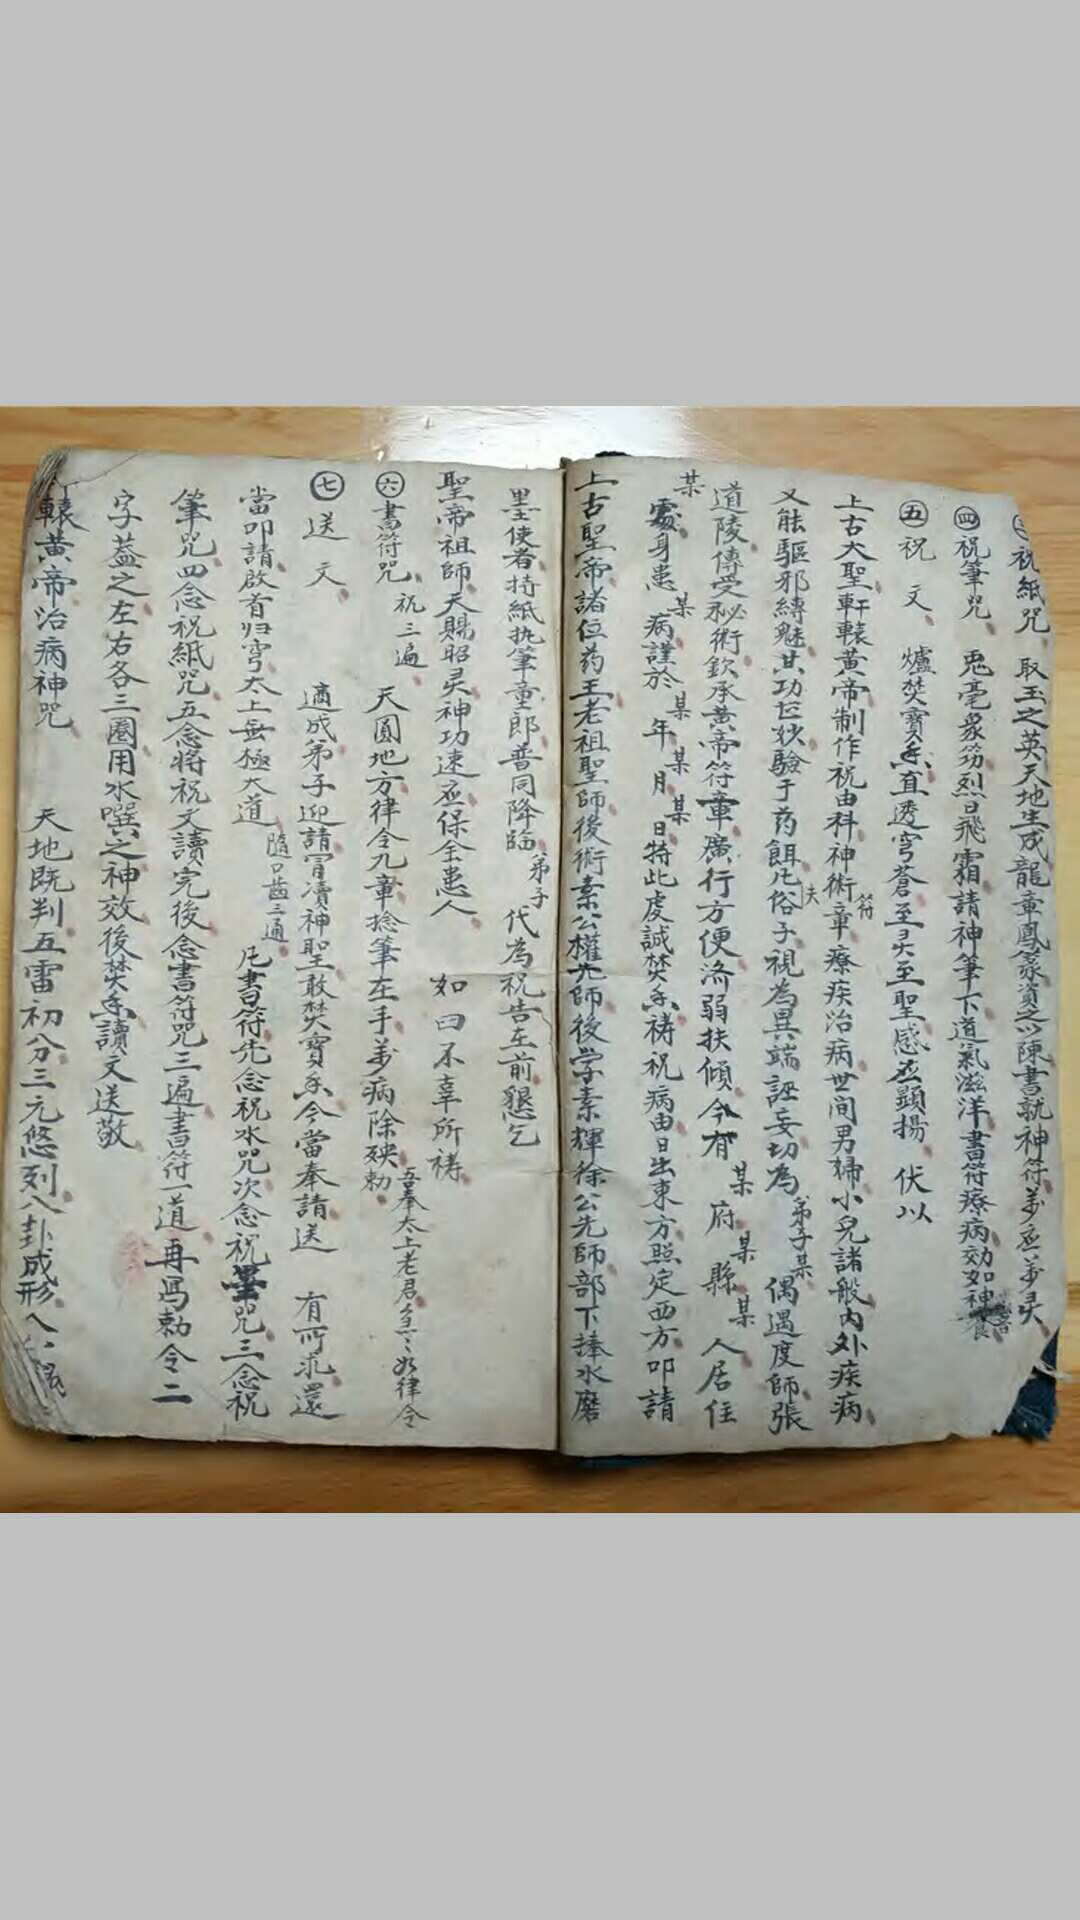 祝紙咒 取玉之英天地生成龍章鳳篆資之以陳書就神符萬應萬灵
㊃祝筆咒 兎毫衆筞烈日飛霜請神筆下道氣滋洋書符療病効如神
㊄祝文 爐焚寶香直透穹蒼至灵至聖感应顯揚 伏以
上古大聖軒轅黃帝制作祝由科神術符章療疾治病世间男婦小兒諸般內外疾病
又能驅邪縛魅其功㠯妙験于药餌夫凡俗子視為異端誣妄切為弟子某 偶遇度師張
道陵傳受祕術欽承黃帝符章廣行方便济弱扶傾今有某府某縣某人居住
某處身患某病謹於某年某月某日特此虔誠焚香祷祝病由日出東方照定西方叩請
上古聖帝諸位药王老祖聖師後術素公權先師後学素輝徐公先師部下捧水磨
墨使者持紙执筆童郎普同降臨弟子代為祝告在前懇乞
聖帝祖師天賜昭灵神功速应保全患人 如曰不辜所祷
㊅書符咒祝三遍 天圓地方律令九章捻筆在手萬病除殃勅吾奉太上老君急々如律令
㊆送文 適成弟子迎請冒凟神聖敢焚寶香今當奉請送 有所求還
當叩請啟首归穹太上無極大道隨口齒三通 凡書符先念祝水咒次念祝墨咒三念祝
筆咒四念祝紙咒五念將祝文讀完後念書符咒三遍書符一道再写勅令二
字葢之左右各三圈用水噀之神效後焚香讀文送敬
轅黃帝治病神咒 天地既判五雷初分三元悠列八卦成形